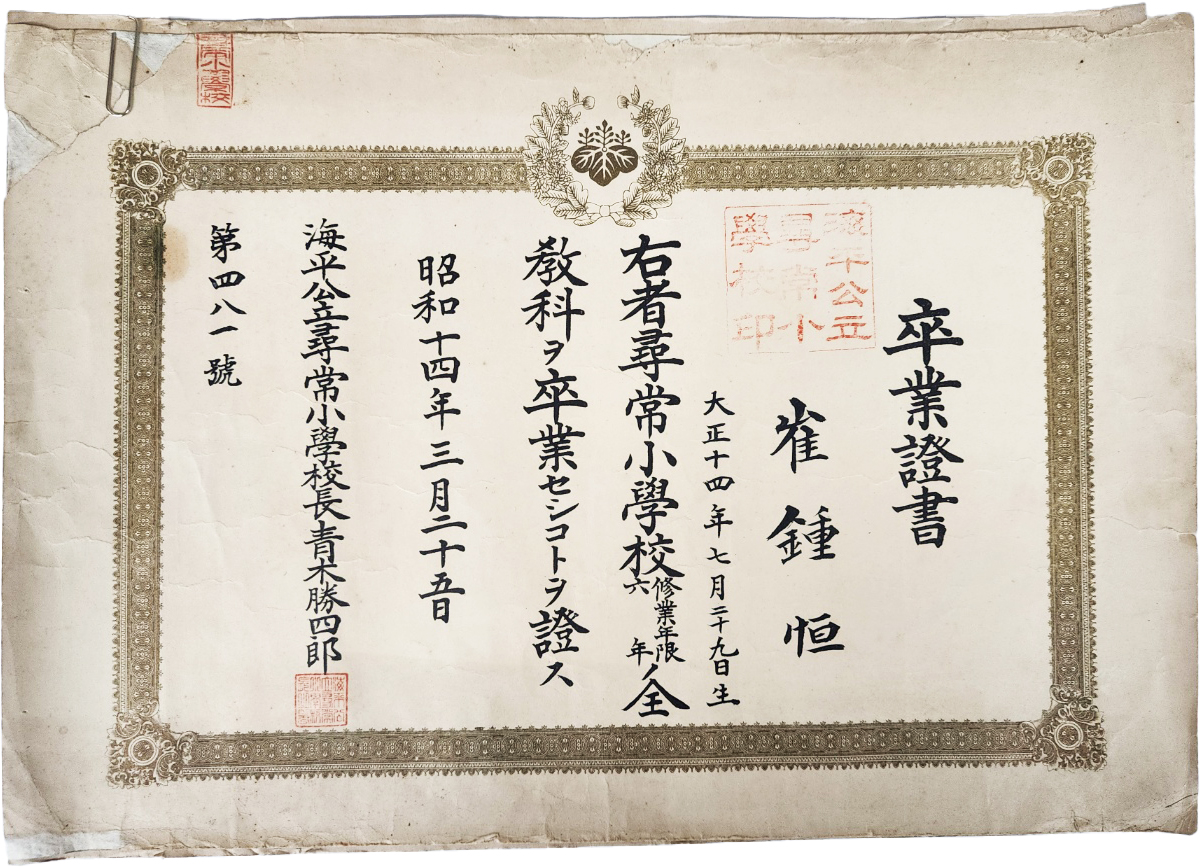 卒業證書
崔鍾恒
大正十四年七月二十九日生
右者尋常小學校修業年限六年ノ全
教科ヲ卒業セシコトヲ證ス
昭和十四年三月二十五日
海平公立尋常小學校長青木勝四郎
第四八一號
海平公立
尋常小
學校印